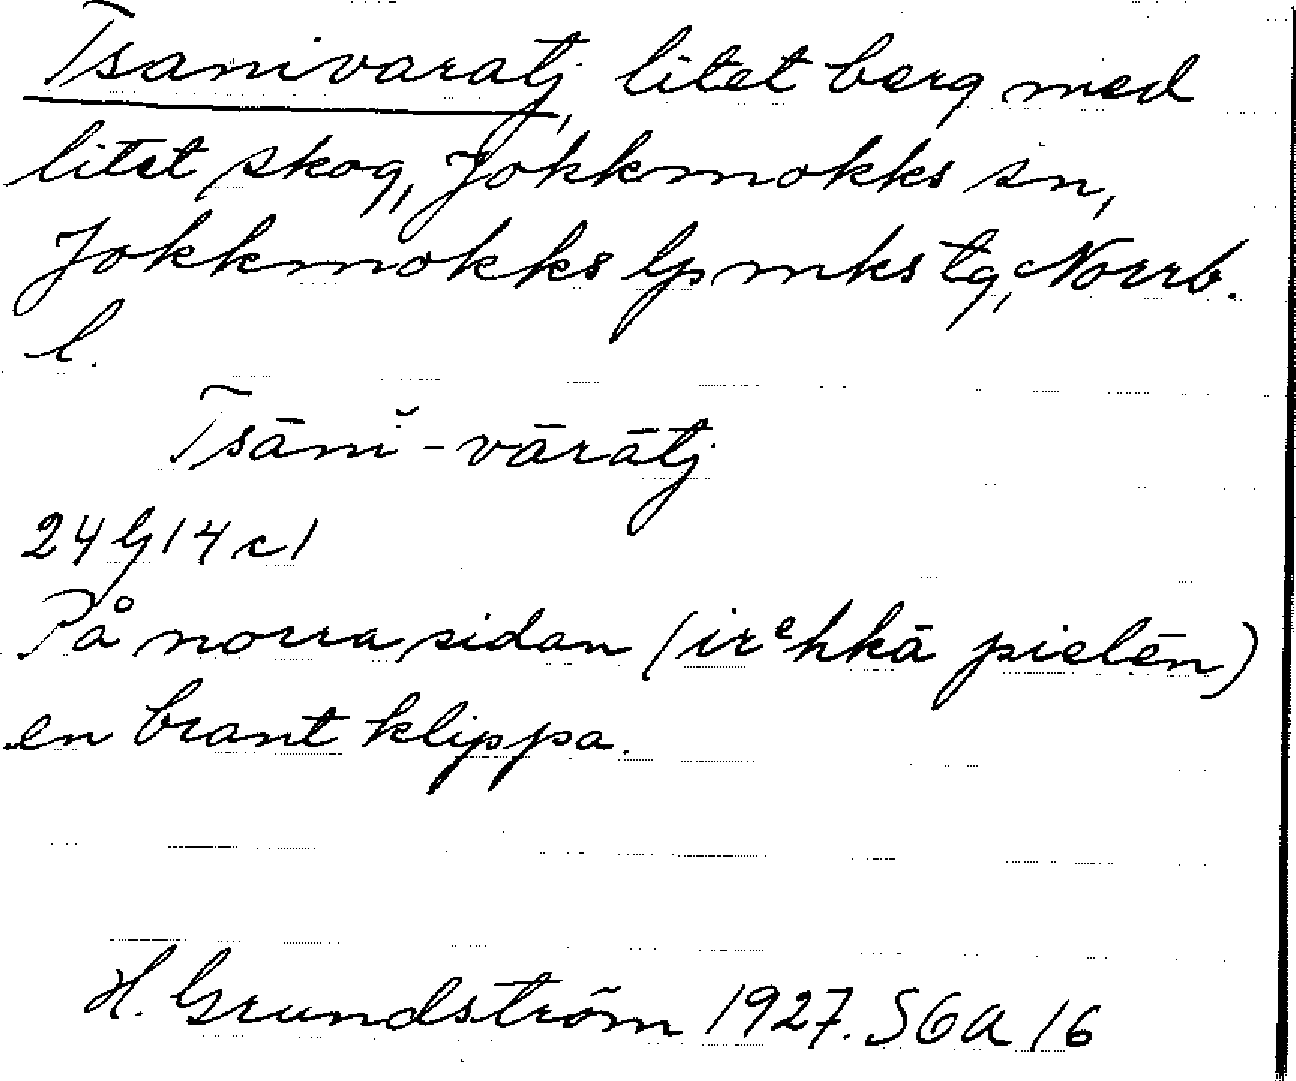 Tsanivaratj, litet berg med
litet skog, Jokkmokks sn,
Jokkmokks lpmks tg, Norrb.
l.
Tsānĭ-vārātj
24G14c1
På norra sidan (irᵉhkā pielēn)
en brant klippa.
H. Grundström 1927. SGA 16